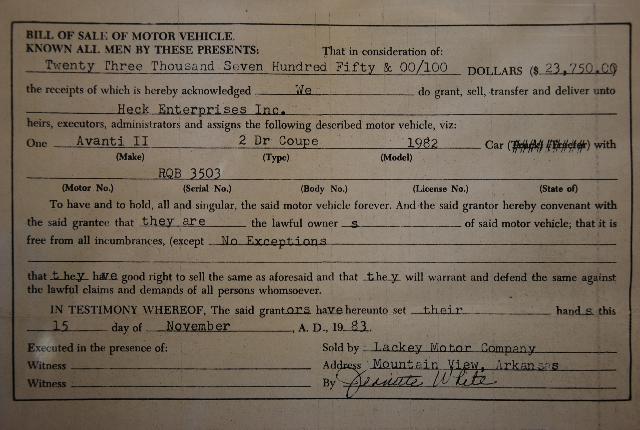 BILL OF SALE OF MOTOR VEHICLE.
KNOWN ALL MEN BY THESE PRESENTS: That in consideration of:
Twenty Three Thousand Seven Hundred Fifty & 00/100 DOLLARS ($ 23,750.00)
the receipts of which is hereby acknowledged We do grant, sell, transfer and deliver unto
Heck Enterprises Inc.
heirs, executors, administrators and assigns the following described motor vehicle, viz:
One Avanti II 2 Dr Coupe 1982 Car (Truck) (Tractor) with
(Make) (Type) (Model)
RQB 3503
(Motor No.) (Serial No.) (Body No.) (License No.) (State of)
To have and to hold, all and singular, the said motor vehicle forever. And the said grantor hereby convenant with
the said grantee that they are the lawful owner s of said motor vehicle; that it is
free from all incumbrances, (except No Exceptions
that they have good right to sell the same as aforesaid and that they will warrant and defend the same against
the lawful claims and demands of all persons whomsoever.
IN TESTIMONY WHEREOF, The said grantors have hereunto set their hand s this
15 day of November, A. D., 19 83.
Executed in the presence of: Sold by: Lackey Motor Company
Witness Address Mountain View, Arkansas
Witness By Jeanette White